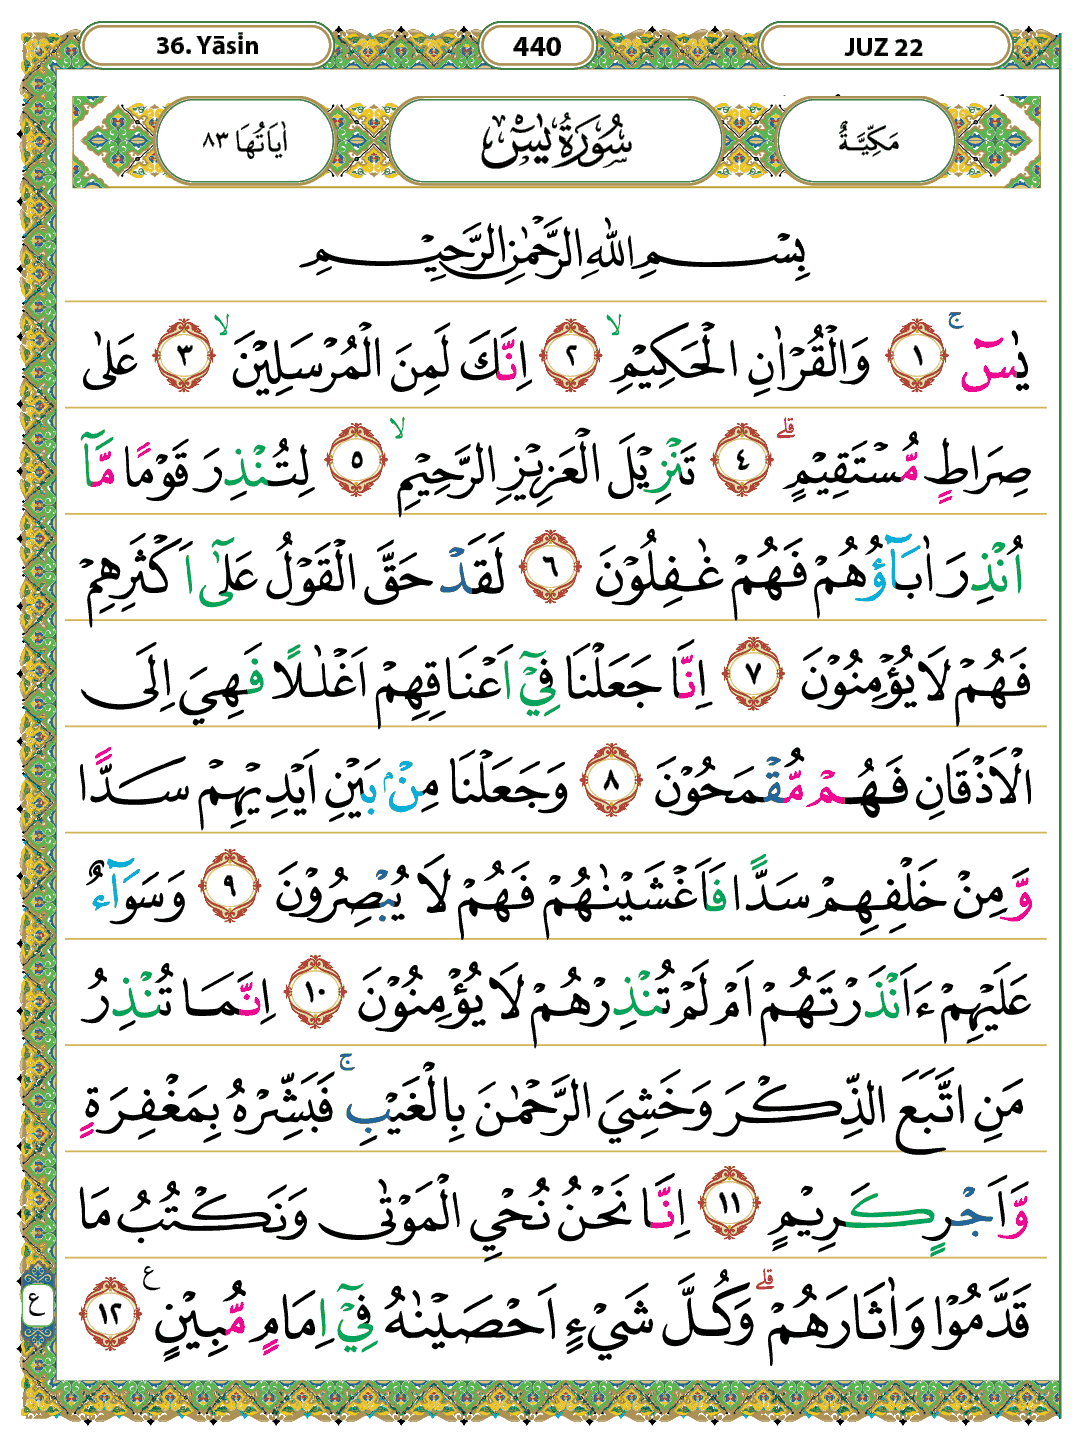 36. Yāsin
440
JUZ 22
مَكِّيَّةٌ
سُوْرَةُ يٰسٓ
اٰيَاتُهَا ٨٣
بِسْمِ اللّٰهِ الرَّحْمٰنِ الرَّحِيْمِ
يٰسٓ ۚ ١ وَالْقُرْاٰنِ الْحَكِيْمِ ۙ ٢ اِنَّكَ لَمِنَ الْمُرْسَلِيْنَ ۙ ٣ عَلٰى
صِرَاطٍ مُّسْتَقِيْمٍ ۗ ٤ تَنْزِيْلَ الْعَزِيْزِ الرَّحِيْمِ ۙ ٥ لِتُنْذِرَ قَوْمًا مَّآ
اُنْذِرَ اٰبَاۤؤُهُمْ فَهُمْ غٰفِلُوْنَ ٦ لَقَدْ حَقَّ الْقَوْلُ عَلٰٓى اَكْثَرِهِمْ
فَهُمْ لَا يُؤْمِنُوْنَ ٧ اِنَّا جَعَلْنَا فِيْٓ اَعْنَاقِهِمْ اَغْلٰلًا فَهِيَ اِلَى
الْاَذْقَانِ فَهُمْ مُّقْمَحُوْنَ ٨ وَجَعَلْنَا مِنْۢ بَيْنِ اَيْدِيْهِمْ سَدًّا
وَّمِنْ خَلْفِهِمْ سَدًّا فَاَغْشَيْنٰهُمْ فَهُمْ لَا يُبْصِرُوْنَ ٩ وَسَوَاۤءٌ
عَلَيْهِمْ ءَاَنْذَرْتَهُمْ اَمْ لَمْ تُنْذِرْهُمْ لَا يُؤْمِنُوْنَ ١٠ اِنَّمَا تُنْذِرُ
مَنِ اتَّبَعَ الذِّكْرَ وَخَشِيَ الرَّحْمٰنَ بِالْغَيْبِ ۚ فَبَشِّرْهُ بِمَغْفِرَةٍ
وَّاَجْرٍ كَرِيْمٍ ١١ اِنَّا نَحْنُ نُحْيِ الْمَوْتٰى وَنَكْتُبُ مَا
قَدَّمُوْا وَاٰثَارَهُمْ ۗ وَكُلَّ شَيْءٍ اَحْصَيْنٰهُ فِيْٓ اِمَامٍ مُّبِيْنٍ ع ١٢
ع